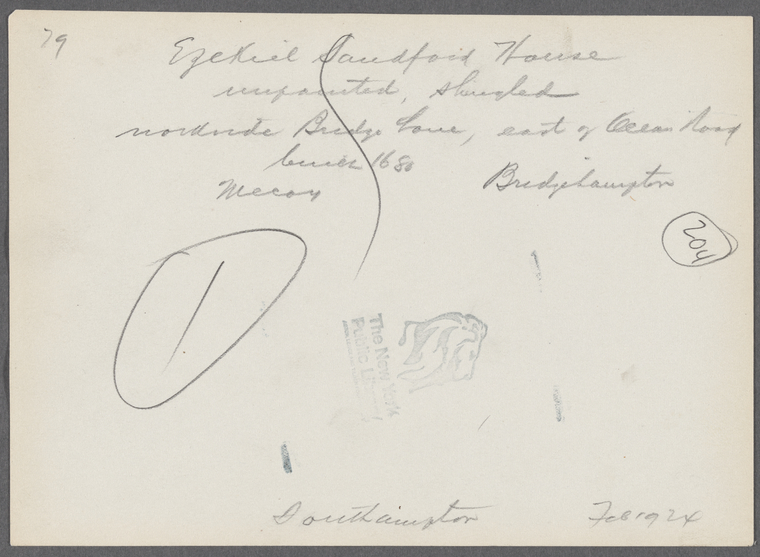 79
Ezekiel Sandford House
unpainted, shingled
northside Bridge Lane, east of Ocean Road
built 1680
Mccoy Bridgehampton
204
1
The New York
Public Library
Southampton Feb 1924